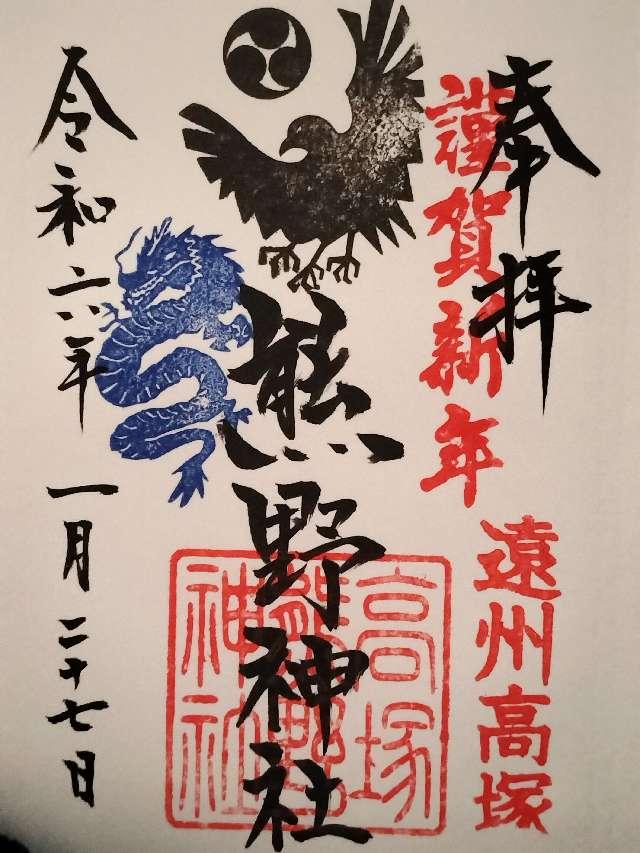 奉拝
謹賀新年
遠州高塚
熊野神社
高塚
熊野
神社
令和六年
一月二十七日